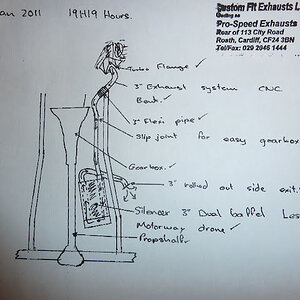 an 2011 19H19 Hours.
Custom Fit Exhausts L
Pro-Speed Exhausts
Rear of 113 City Road
Roath, Cardiff, CF24 3BN
Tel/Fax: 029 2045 1444
Turbo Flange ✓
3" Exhaust system CNC
Bent. ✓
3" Flexi pipe ✓
Slip joint for easy gearbox
Gearbox ✓
3" rolled out side exit.
Silencer 3" Dual baffel Les
Motorway drone ✓
Propshaft ✓